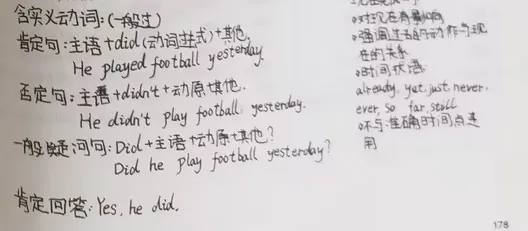 含实义动词:(一般过)
肯定句:主语+did(动词过去式)+其他.
He played football yesterday.
否定句:主语+didn't+动原+其他.
He didn't play football yesterday.
一般疑问句:Did+主语+动原+其他?
Did he play football yesterday?
肯定回答:Yes, he did.
对现在有影响
强调过去的动作与现
在的关系
时间状语:
already, yet, just, never,
ever, so far, still
不与准确时间点连
用
178